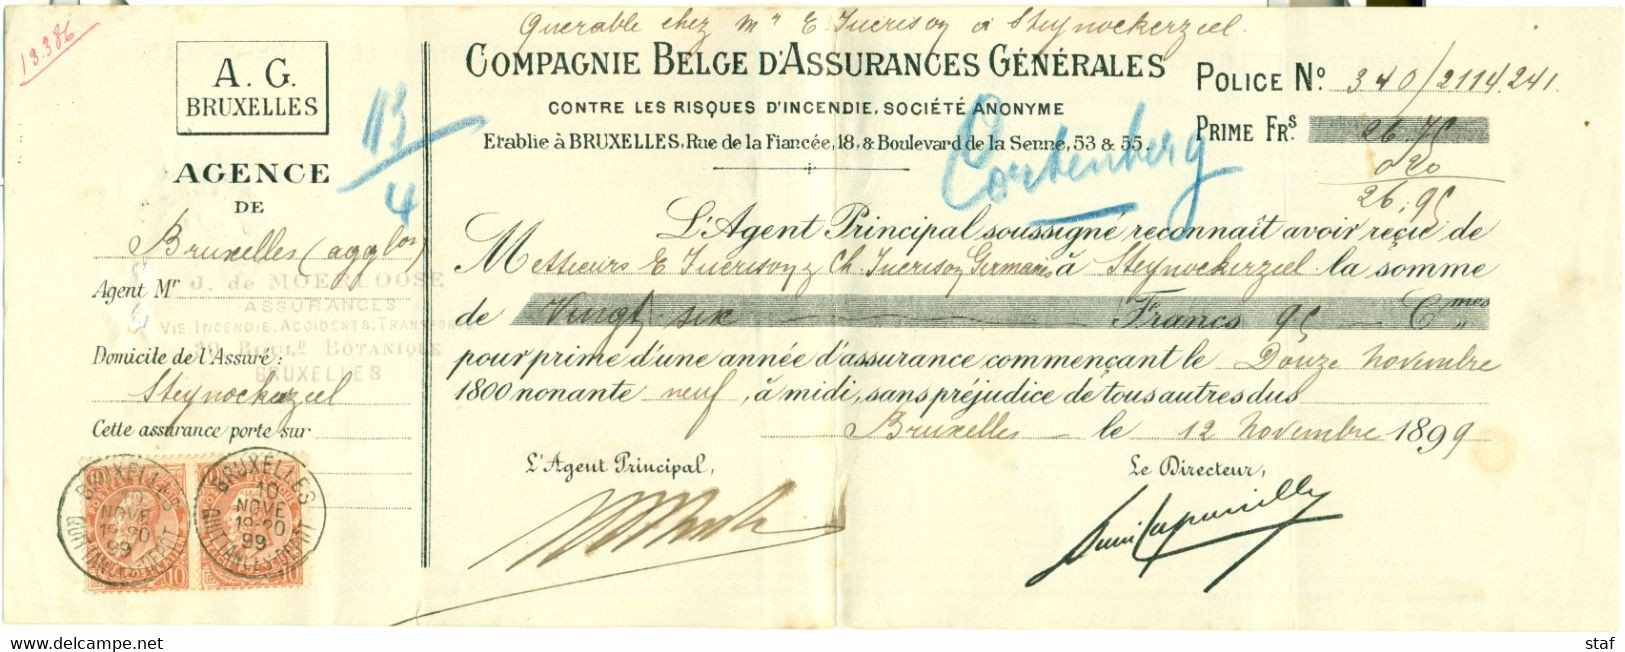 13.386
Querable chez Mr E. Tuerison à Steynockerzeel.
A. G.
BRUXELLES
AGENCE
DE
Bruxelles (agglon)
Agent Mr
J. de MOERLOOSE
ASSURANCES
VIE. INCENDIE. ACCIDENTS. TRANSPORTS
39 BOULD BOTANIQUE
BRUXELLES
Domicile de l'Assuré:
Steynockerzeel
Cette assurance porte sur
BRUXELLES
10
NOVE
19-20
99
QUITTANCES-DEPOT
10
BRUXELLES
10
NOVE
19-20
99
QUITTANCES-DEPOT
10
113/4
COMPAGNIE BELGE D'ASSURANCES GÉNÉRALES
CONTRE LES RISQUES D'INCENDIE, SOCIÉTÉ ANONYME
Etablie à BRUXELLES, Rue de la Fiancée, 18, & Boulevard de la Senne, 53 & 55.
Cortenberg
POLICE No. 340/2114.241.
PRIME FRS. 26.75
0 20
26.95
L'Agent Principal soussigné reconnaît avoir reçu de
Messieurs E Tuerison & Ch. Tuerison Germanes à Steynockerzeel la somme
de Vingt six Francs 95 Cmes
pour prime d'une année d'assurance commençant le Douze novembre
1800 nonante neuf, à midi, sans préjudice de tous autres dus
Bruxelles le 12 Novembre 1899
L'Agent Principal,
Le Directeur,
staf